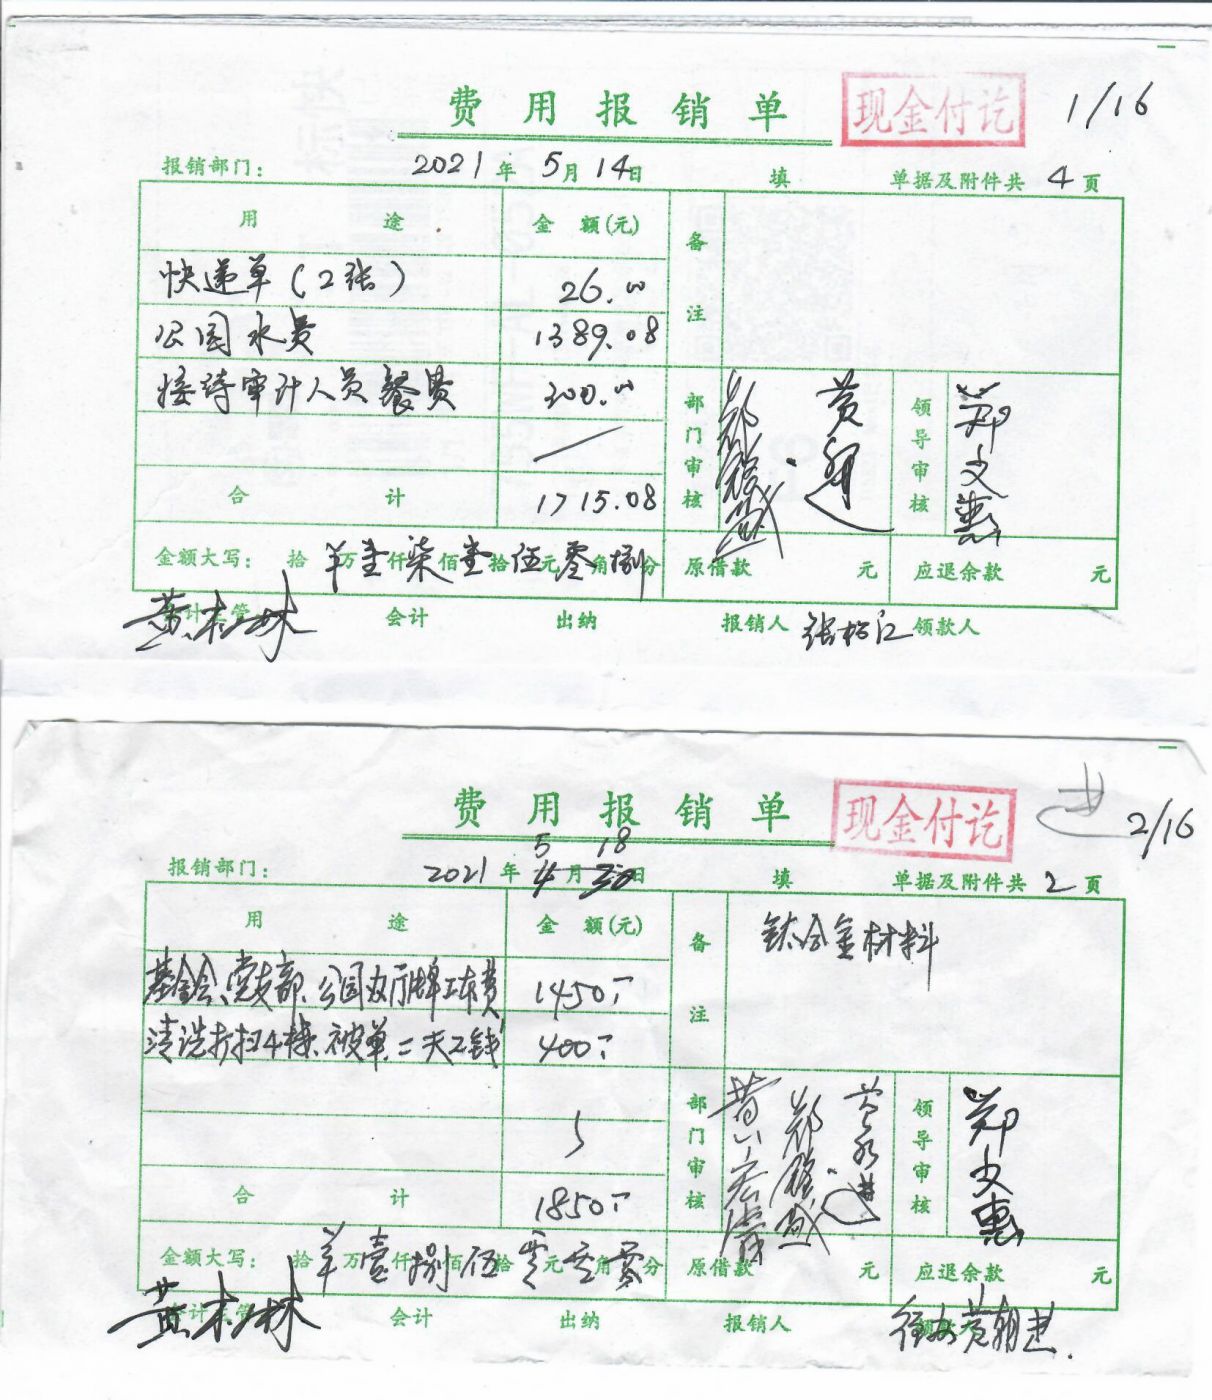 费用报销单 现金付讫 1/16
报销部门： 2021年5月14日 填 单据及附件共4页
用途 金额(元) 备注
快递单(2张) 26.00
公园水费 1389.08
接待审计人员餐费 300.00
部门审核 领导审核 郑文惠
合计 1715.08
金额大写： 拾 羊万壹仟柒佰壹拾伍元零角捌分 原借款 元 应退余款 元
会计主管 黄木林 会计 出纳 报销人 张松江 领款人
费用报销单 现金付讫 2/16
报销部门： 2021年5月18日 填 单据及附件共2页
用途 金额(元) 备注 钛合金材料
基金会、党支部、公园办厅牌工本费 1450.-
清洗打扫4栋、被单、二天工钱 400.-
部门审核 领导审核 郑文惠
合计 1850.-
金额大写： 拾 羊万壹仟捌佰伍拾零元零角零分 原借款 元 应退余款 元
会计主管 黄木林 会计 出纳 报销人 领款人